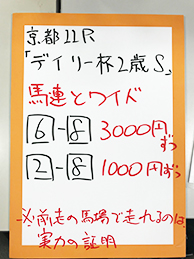 京都11R
「デイリー杯2歳S」
馬連とワイド
6-8 3000円ずつ
2-8 1000円ずつ
※前走の馬場で走れるのは
実力の証明